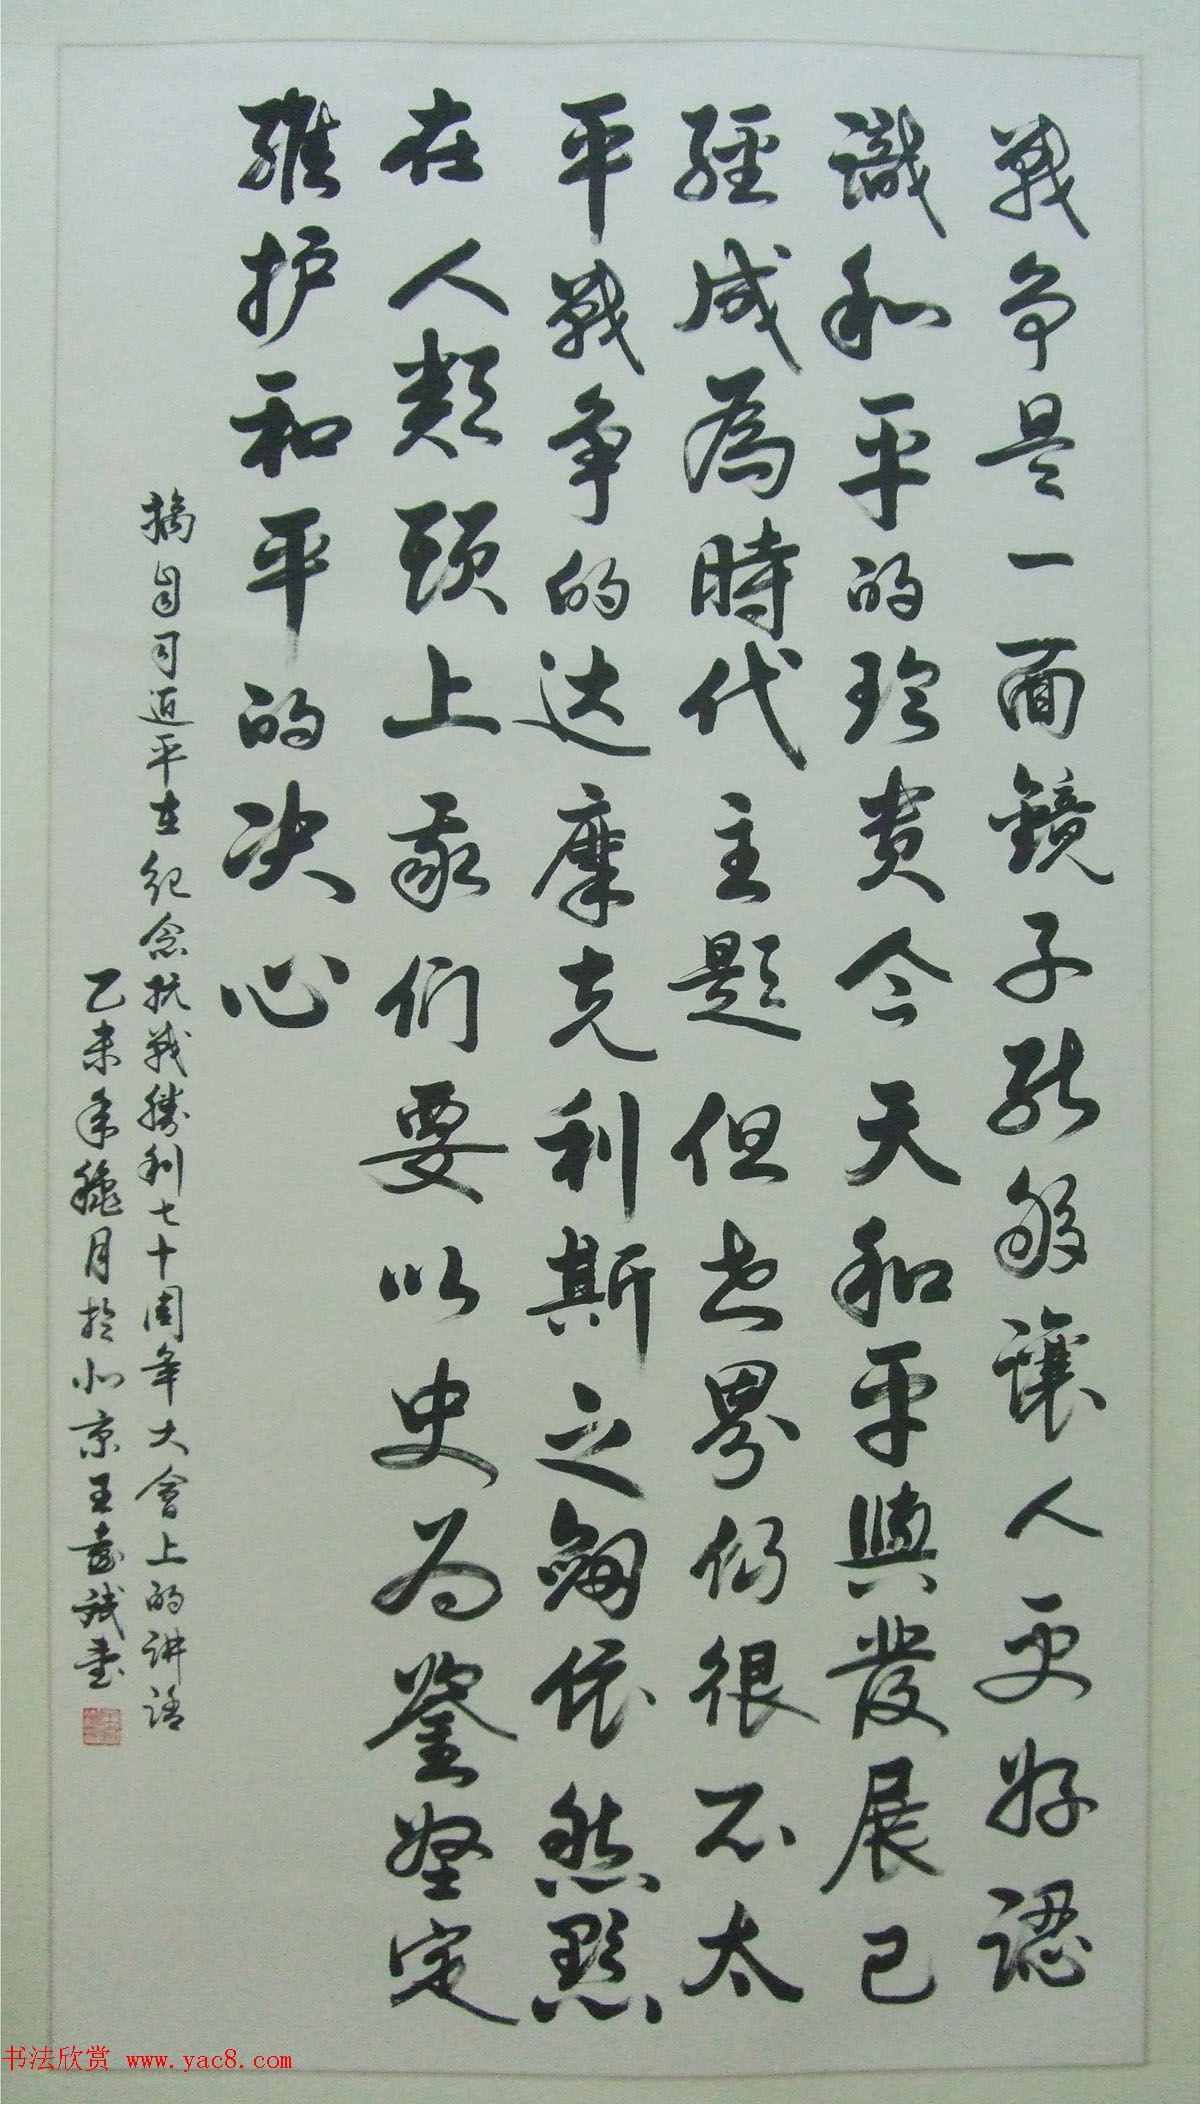 戰争是一面鏡子能够讓人更好認
識和平的珍贵今天和平與發展已
經成為時代主題但世界仍很不太
平戰争的达摩克利斯之劍依然懸
在人類頭上我们要以史为鉴堅定
維护和平的决心
摘自习近平在纪念抗戰勝利七十周年大會上的讲话
乙未年穐月於北京王誠書
书法欣赏 www.yac8.com